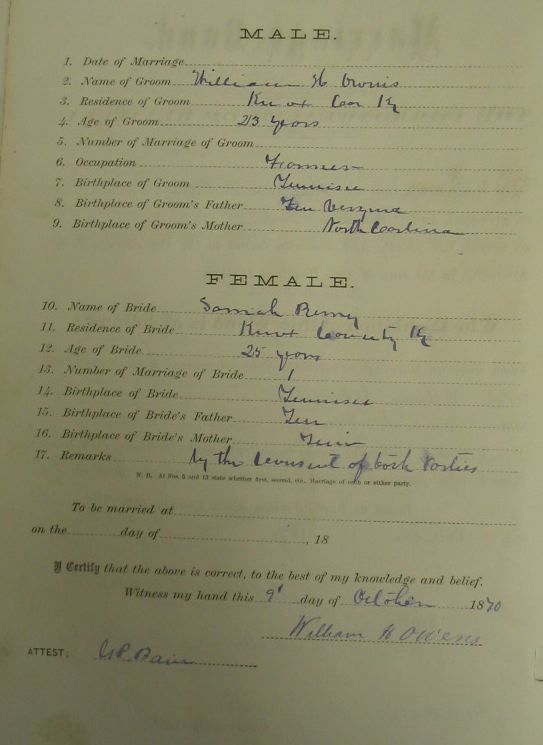 MALE.
1. Date of Marriage
2. Name of Groom William H Owens
3. Residence of Groom Knox Cou Ky
4. Age of Groom 23 years
5. Number of Marriage of Groom
6. Occupation Farmer
7. Birthplace of Groom Tennisee
8. Birthplace of Groom's Father
9. Birthplace of Groom's Mother North Carolina
FEMALE.
10. Name of Bride Sarah
11. Residence of Bride Knox County Ky
12. Age of Bride 25 years
13. Number of Marriage of Bride 1
14. Birthplace of Bride Tennisee
15. Birthplace of Bride's Father Ten
16. Birthplace of Bride's Mother
17. Remarks by the consent of both Parties
N. B. At Nos. 5 and 13 state whether first, second, etc., Marriage of each or either party.
To be married at
on the day of , 18
I Certify that the above is correct, to the best of my knowledge and belief.
Witness my hand this 9' day of October 1870
William H Owens
ATTEST: